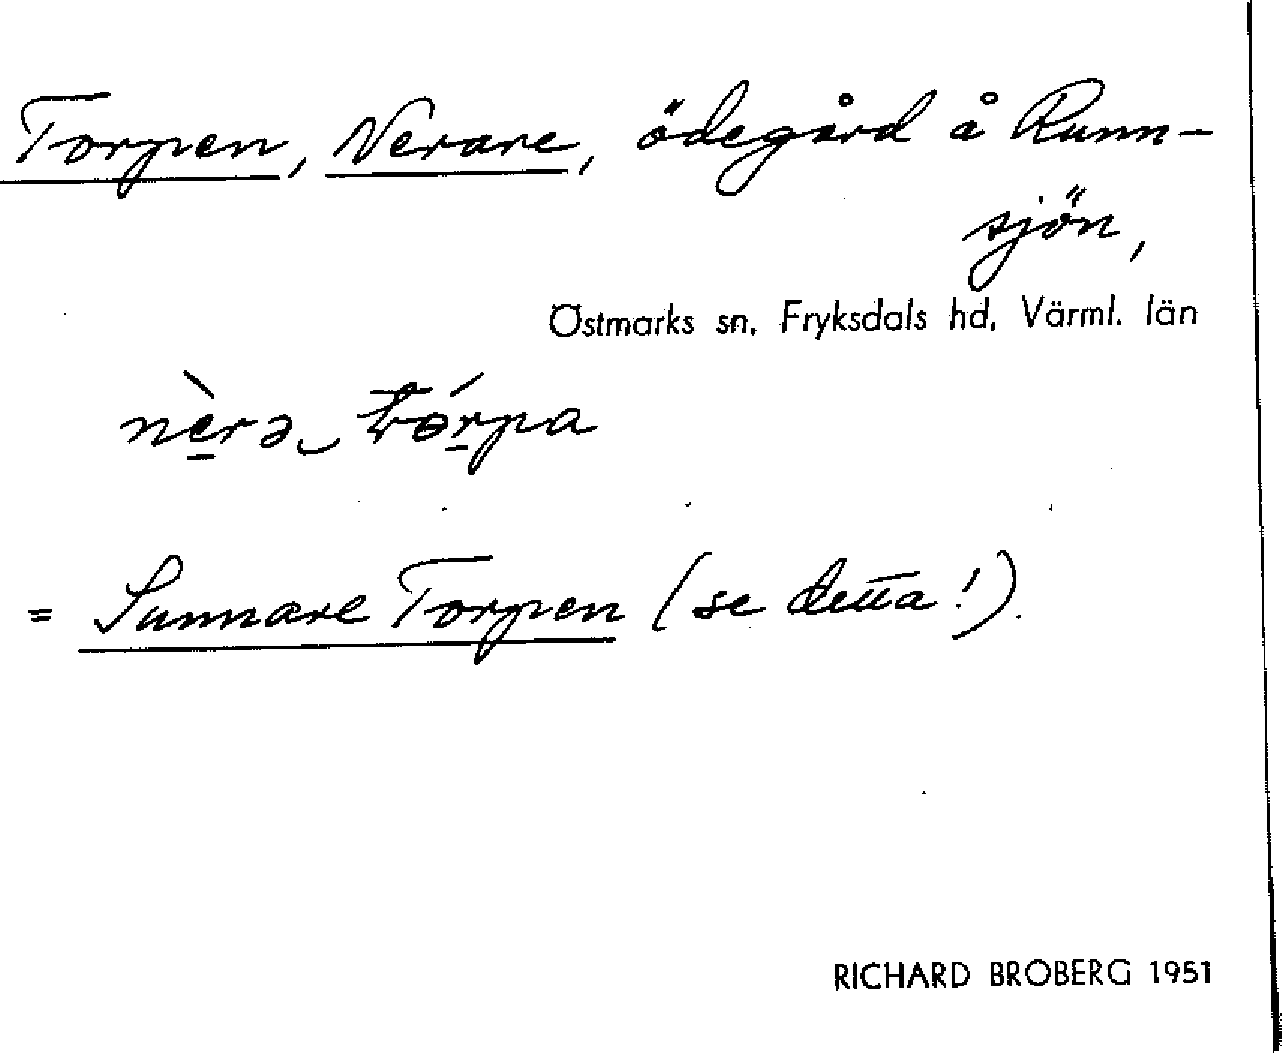 Torpen, Nerare, ödegård å Runn-
sjön,
Östmarks sn, Fryksdals hd, Värml. län
nèrə‿tórpa
= Sunnare Torpen (se detta!).
RICHARD BROBERG 1951